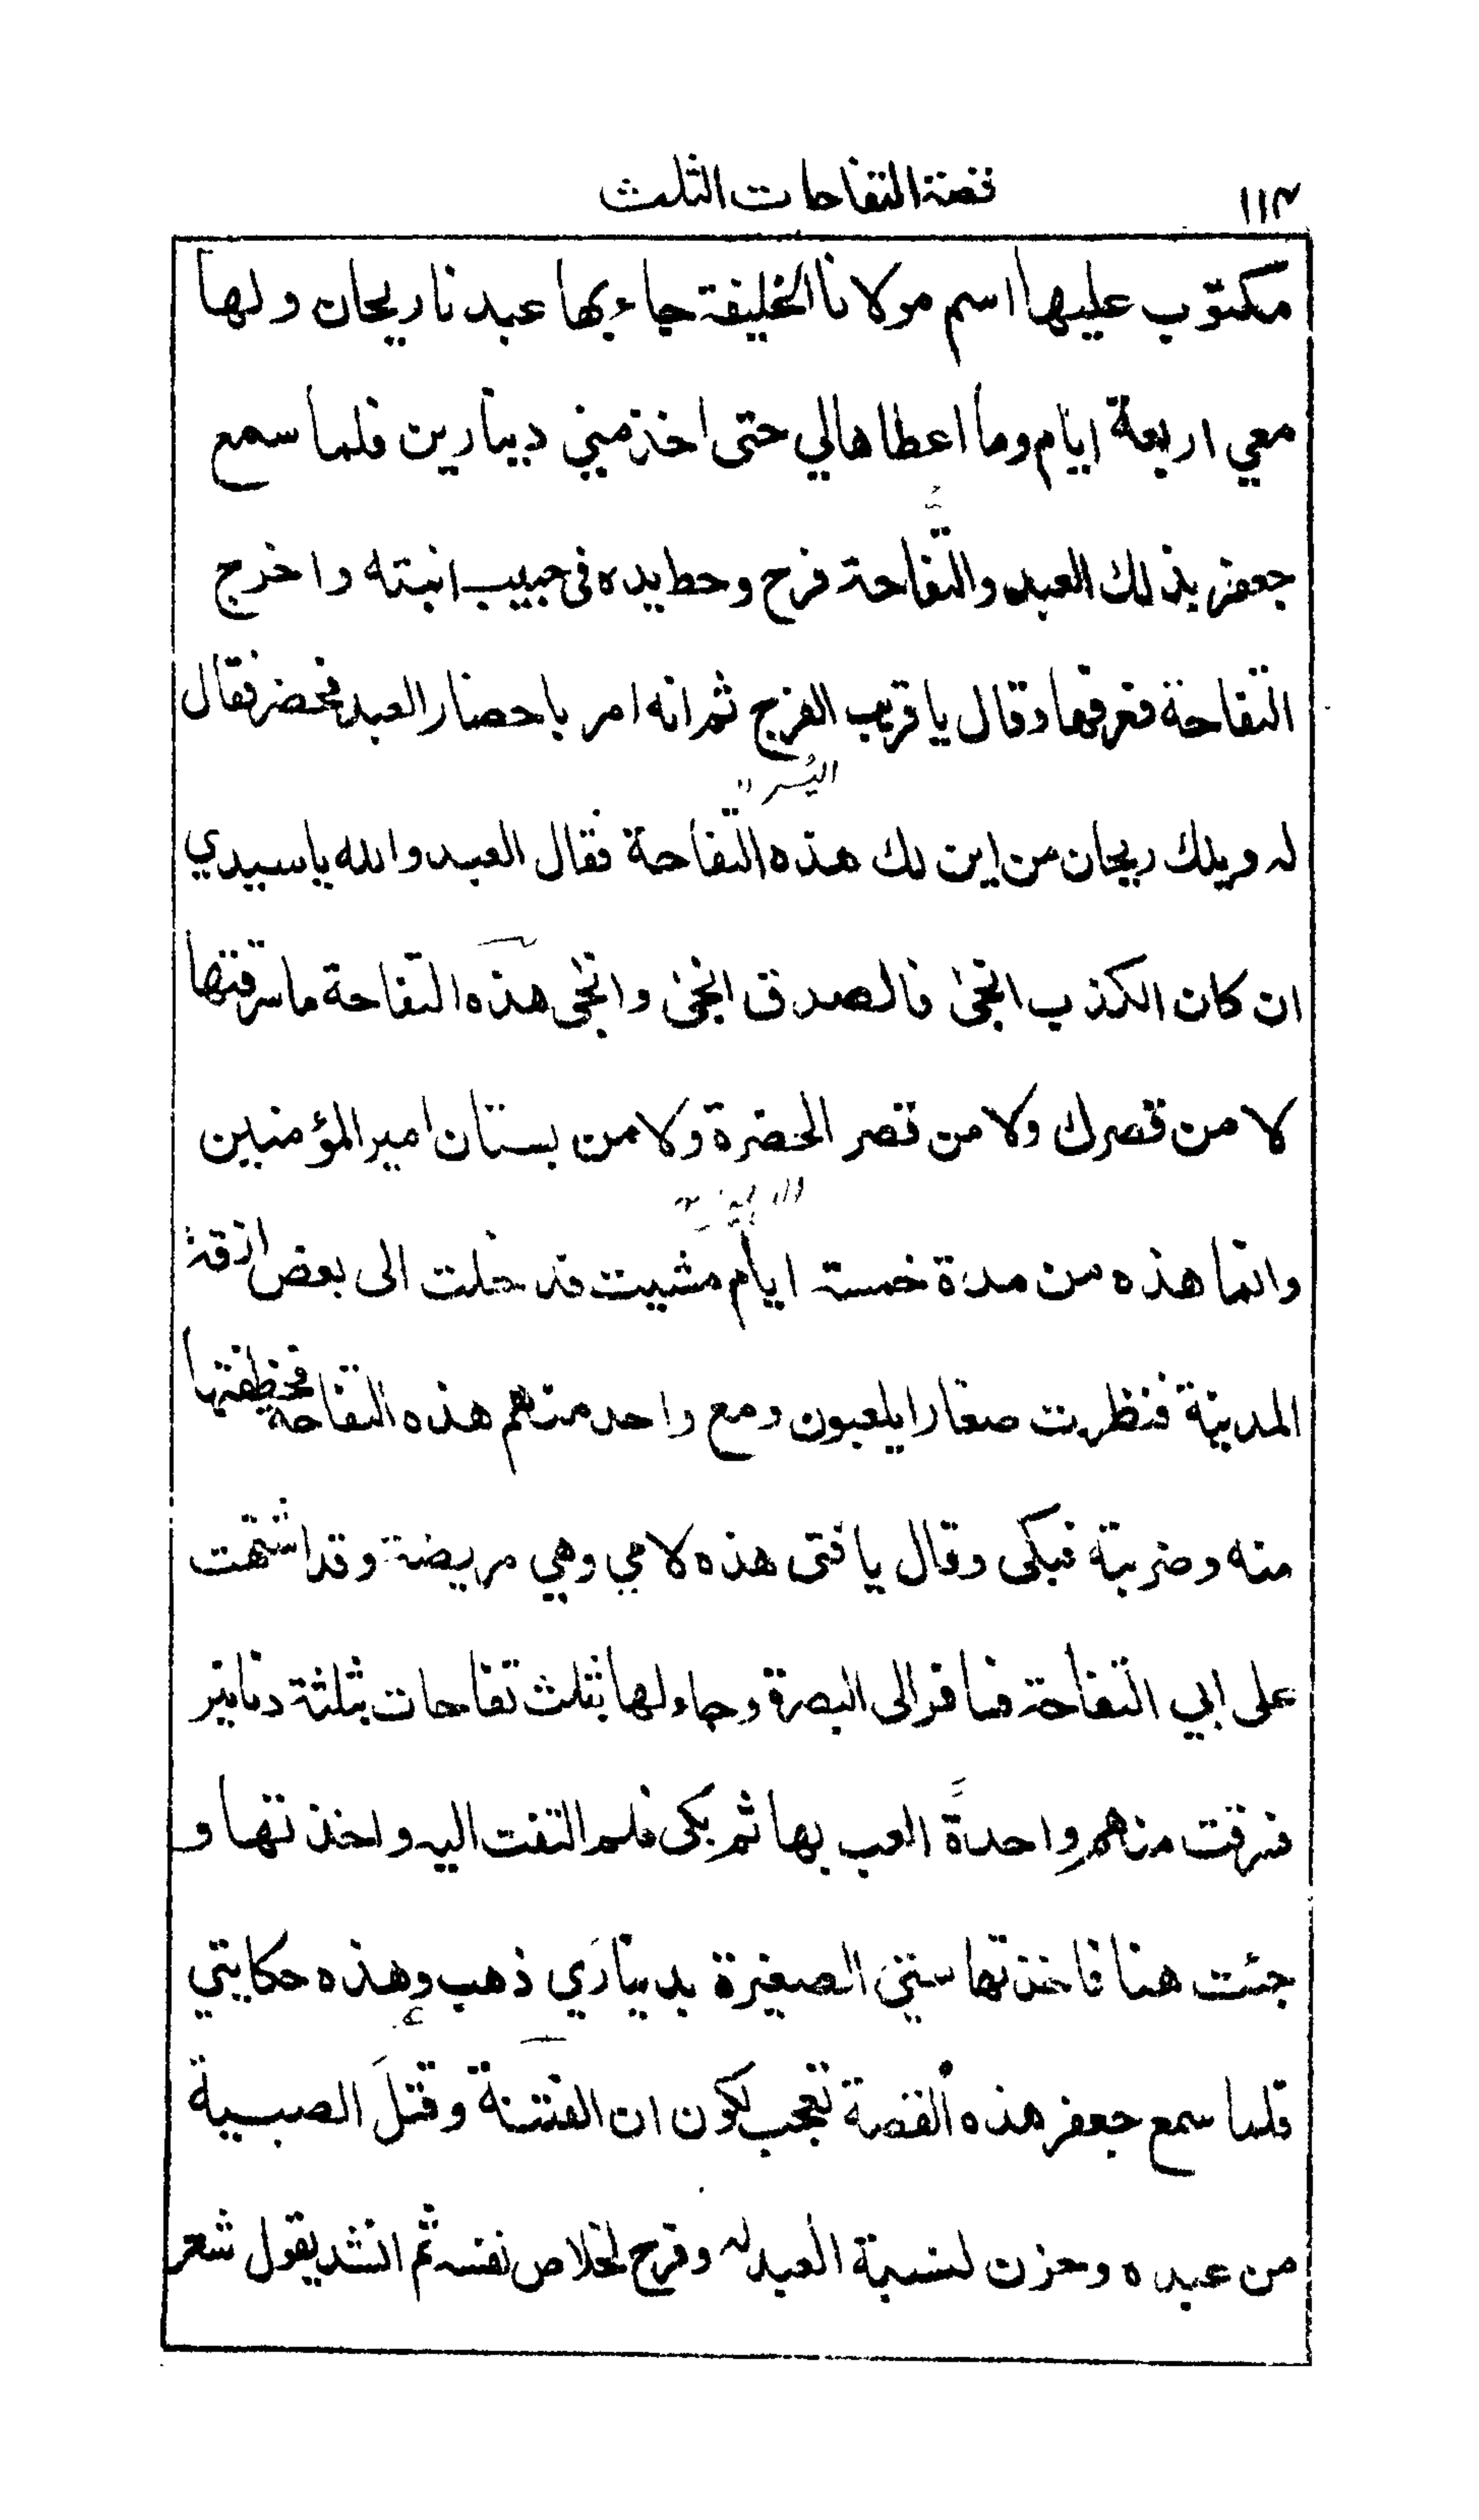 ١١٣ قصة التفاحات الثلث
مكتوب عليها اسم مولانا الخليفة جاء بها عبدنا ريحان ولها
معي اربعة ايام وما اعطاها لي حتى اخذ مني دينارين فلما سمع
جعفر بذلك العبد والتفّاحة فرح وحط يده في جيب ابنته واخرج
التفاحة فعرفها وقال يا قريب الفرج ثم انه امر باحضار العبد فحضر فقال
له ويلك ريحان من اين لك هذه التفاحة فقال العبد والله يا سيدي
ان كان الكذب انجى فالصدق انجى وانجى هذه التفاحة ما سرقتها
لا من قصرك ولا من قصر الحضرة ولا من بستان امير المؤمنين
وانما هذه من مدة خمسة ايام مشيت فدخلت الى بعض ازقة
المدينة فنظرت صغارا يلعبون ومع واحد منهم هذه التفاحة فخطفتها
منه وضربتة فبكى وقال يا فتى هذه لامي وهي مريضة وقد اشتهت
على ابي التفاحة فسافر الى البصرة وجاء لها بثلث تفاحات بثلثة دنانير
فسرقت منهم واحدةً العب بها ثم بكى فلم التفت اليه واخذتها و
جئت هنا فاخذتها ستي الصغيرة بدينارَي ذهب وهذه حكايتي
فلما سمع جعفر هذه القصة تعجب لكون ان الفتنة وقتلَ الصبية
من عبده وحزن لنسبة العبد له وفرح لخلاص نفسه ثم انشد يقول شعر